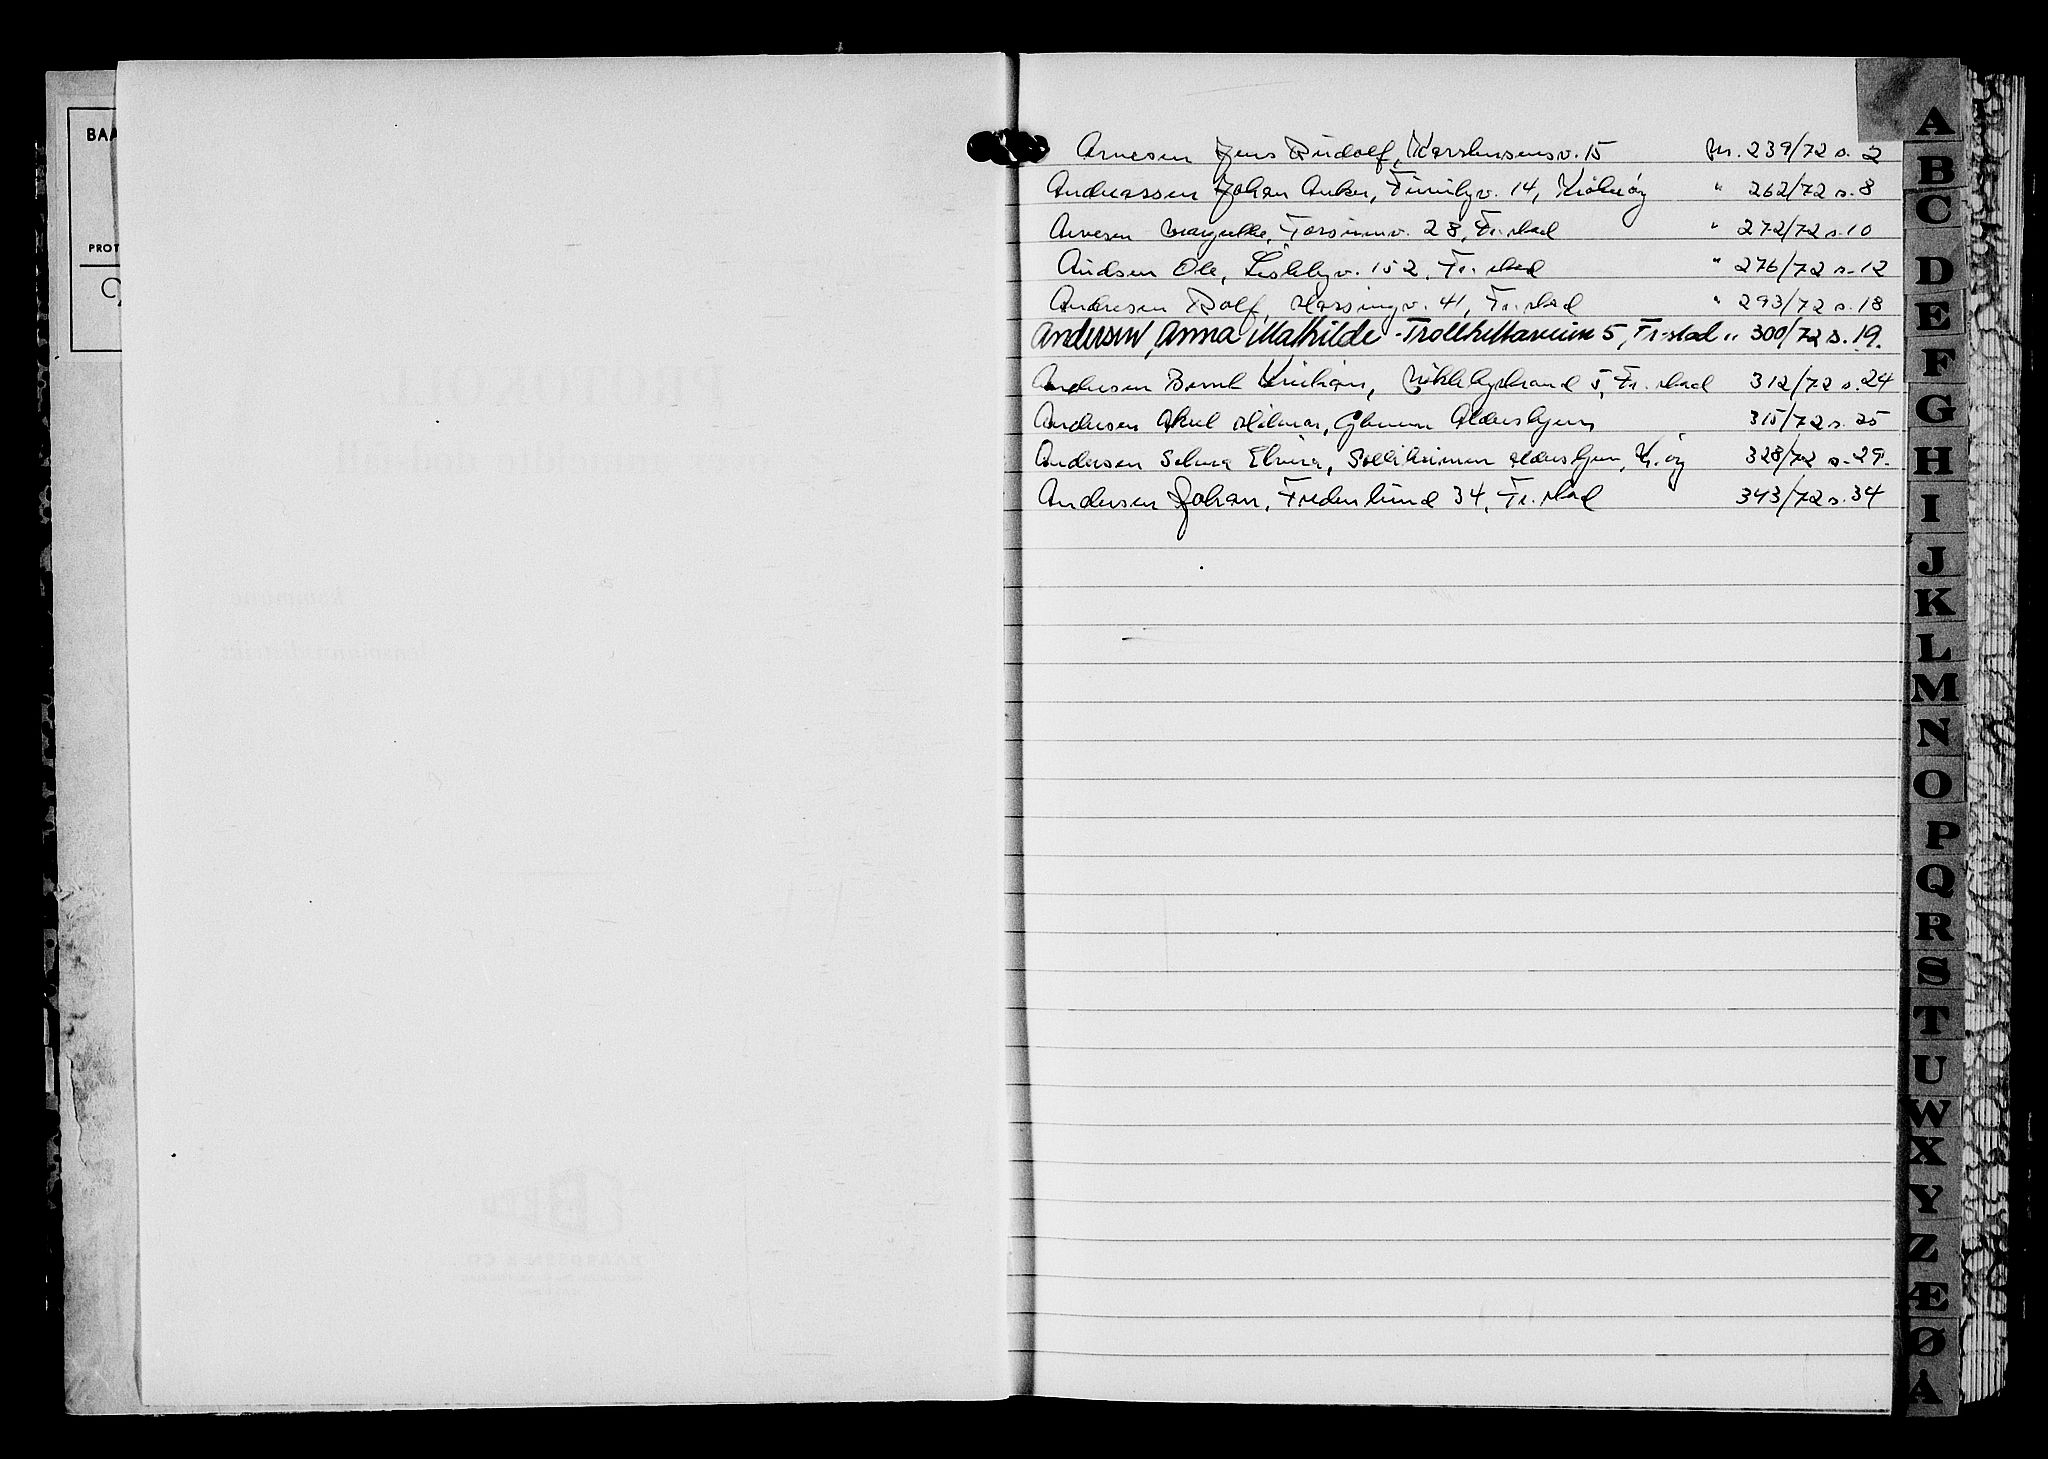 BAA
PROT
Arnesen Jens Rudolf, Karstensensv. 15 Nr. 239/72 s. 2
Andreassen Johan Anker, v. 14, Kråkerøy " 262/72 s. 8
Arnesen Margrethe, v. 28, Fr.stad " 272/72 s. 10
Audsen Ole, Lislebyv. 152, Fr.stad " 276/72 s. 12
Andresen Rolf, v. 41, Fr.stad " 293/72 s. 18
Andersen, Anna Mathilde - Trollhettaveien 5, Fr.stad " 300/72 s. 19.
Andersen Bernt Kristian, 5, Fr.stad 312/72 s. 24
Andersen Aksel Hilmar, Glemmen Aldershjem 315/72 s. 25
Andersen Selma Elvira, Solliheimen aldershjem, Kr.øy 328/72 s. 29.
Andersen Johan, Fredenlund 34, Fr.stad 343/72 s. 34
A
B
C
D
E
F
G
H
I
J
K
L
M
N
O
P
Q
R
S
T
U
W
X
Y
Z
Æ
Ø
Å